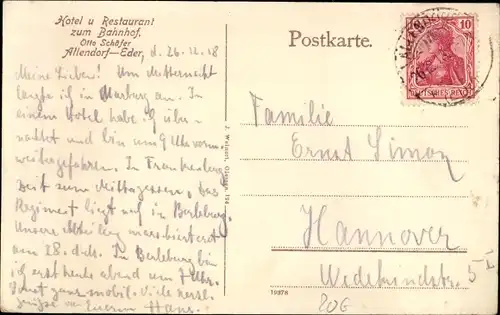 Hotel u Restaurant
zum Bahnhof.
Otto Schäfer
Allendorf-Eder,
d. 26.12.18
Postkarte.
10
DEUTSCHES REICH
Meine Lieben! Um Mitternacht
langte ich in Marburg an. In
einem Hotel habe ich über-
nattet und bin um 9 Uhr vorm.
weitergefahren. In Frankenberg
Zeit zum Mittagessen, Das
Regiment liegt auf in Berleburg.
Unsere Abteilung marschiert erst
am 28. ds. In Berleburg bin
ich erst heute abend um 7 Uhr.
Sonst ganz mobil. Viele herzl.
Grüsse von Eurem Hans.
Familie
Ernst Simon
Hannover
Wedekindstr. 5 I
19378